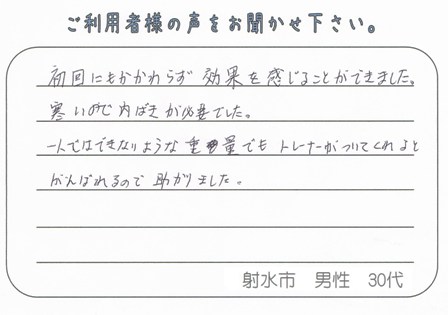 ご利用者様の声をお聞かせ下さい。
初回にもかかわらず 効果を感じることができました。
寒いので内ばきが必要でした。
一人ではできないような重量でも トレーナーがついてくれると
がんばれるので 助かりました。
射水市 男性 30代